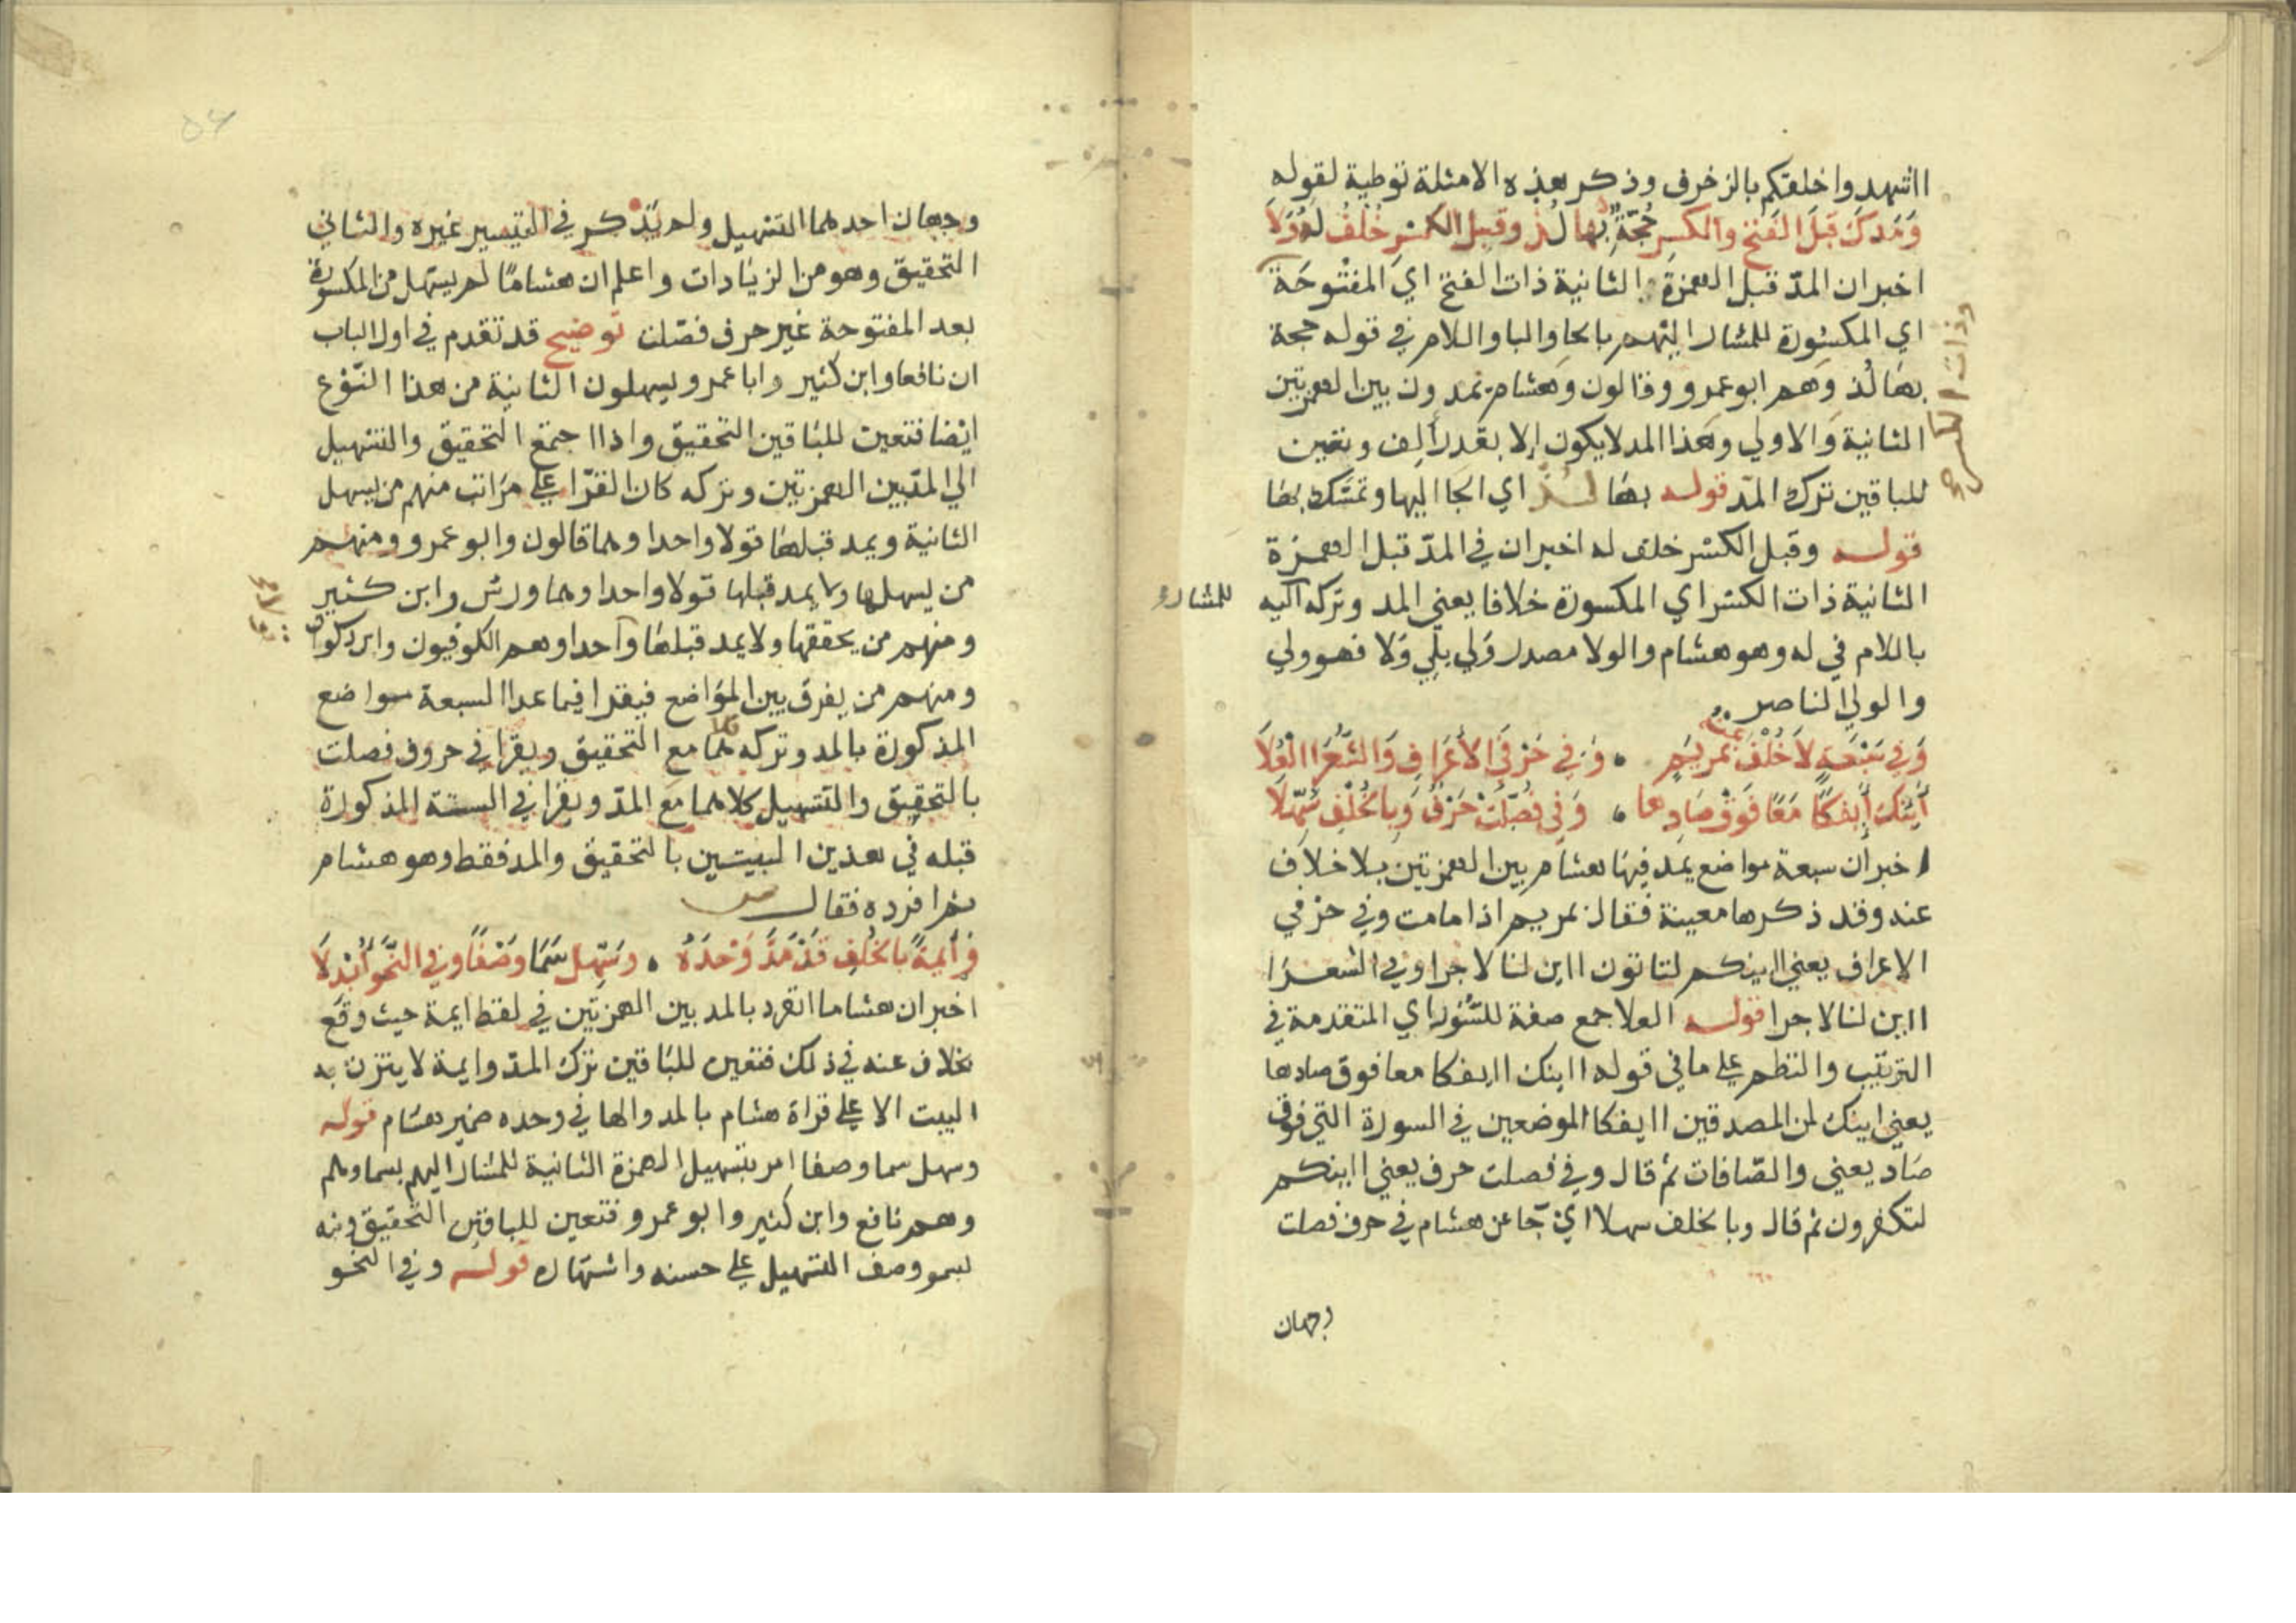 ااشهدوا خلقكم بالزخرف وذكر هذه الامثلة توطية لقوله
وَمَدكَ قَبلَ الفَتحِ والكسرِ حُجّةٌ بِها لُذ وقبل الكسرِ خُلفٌ لهُ وَلَا
اخبر ان المدّ قبل الهمزة الثانية ذات الفتح اي المفتوحة
وذات الكسر
اي المكسورة للمشار اليهم بالحا والبا واللام في قوله حجة
بها لُذ وهم ابو عمرو وقالون وهشام يمدون بين الهمزتين
الثانية والاولي وهذا المد لا يكون إلا بقدر ألف وتعين
للباقين ترك المدّ قوله بها لُذ اي الجا اليها وتمسّك بها
قوله وقبل الكسر خلف له اخبر ان في المدّ قبل الهمزة
الثانية ذات الكسر اي المكسورة خلافا يعني المد وتركه للمشار اليه
باللام في له وهو هشام والولا مصدر وَلي يلي وَلا فهو ولي
والولي الناصر
وَفي سَبْعَةٍ لاَ خُلْفَ عنه بمريمٍ ، وَفي حَرْفَي الأَعْرَافِ وَالشُّعَرَا الْعُلاَ
أَيِنَّكَ أَيِفكًا مَعًا فَوْقَ صَادِها ، وَفي فُصِّلَتْ حَرْفٌ وَبِالخُلْفِ سُهِّلَا
اخبر أن سبعة مواضع يمد فيها هشام بين الهمزتين بلا خلاف
عنه وقد ذكرها معينة فقال بمريم اذا ما مت وفي حرفي
الاعراف يعني اينكم لتاتون ااين لنا لاجرا وفي الشعرا
ااين لنا لاجرا قوله العلا جمع صفة للسّور اي المتقدمة في
الترتيب والنظم علي ما في قوله اينك ايفكا معا فوق صادها
يعني اينك لمن المصدقين اايفكا الموضعين في السورة التي فوق
صاد يعني والصّافات ثم قال وفي فصلت حرف يعني اينكم
لتكفرون ثم قال وبالخلف سهلا اي جا عن هشام في حرف فصلت
وجهان
وجهان احدهما التسهيل ولم يَذكر في التيسير غيره والثاني
التحقيق وهو من الزيادات واعلم ان هشامًا لم يسهل من المكسورة
بعد المفتوحة غير حرف فصّلت توضيح قد تقدم في اول الباب
ان نافعا وابن كثير وابا عمرو يسهلون الثانية من هذا النّوع
ايضا فتعين للباقين التحقيق واذا اجتمع التحقيق والتسهيل
الي المدّ بين الهمزتين وتركه كان القرّا علي مراتب منهم من يسهل
الثانية ويمد قبلها قولا واحدا وهما قالون وابو عمرو ومنهم
من يسهلها ولا يمد قبلها قولا واحدا وهما ورش وابن كثير
ومنهم من يحققها ولا يمد قبلها قولا واحدا وهم الكوفيون وابن ذكوان
ومنهم من يفرق بين المواضع فيقرا فيما عدا السبعة مواضع
المذكورة بالمد وتركه كلاهما مع التحقيق ويقرا في حروف فصلت
بالتحقيق والتسهيل كلاهما مع المدّ ويقرا في الستة المذكورة
قبله في هذين البيتين بالتحقيق والمد فقط وهو هشام
ثم افرده فقال
وَأَيِمةً بالخُلفِ قَدْ مَدَّ وَحْدَهُ ، وسَهِّل سَمَا وَصْفًا وفي النَّحْوِ أُبْدلَا
اخبر ان هشاما انفرد بالمد بين الهمزتين في لفظ ايمة حيث وقَع
بخلاف عنه في ذلك فتعين للباقين ترك المدّ وايمة لا يتزن به
البيت الا علي قراة هشام بالمد والها في وحده ضمير هشام قوله
وسهل سما وصفا امر بتسهيل الهمزة الثانية للمشار اليهم بسما وهم
وهم نافع وابن كثير وابو عمرو فتعين للباقين التحقيق ونبه
بسمو وصف التسهيل علي حسنه واشتهاره قوله وفي النحو